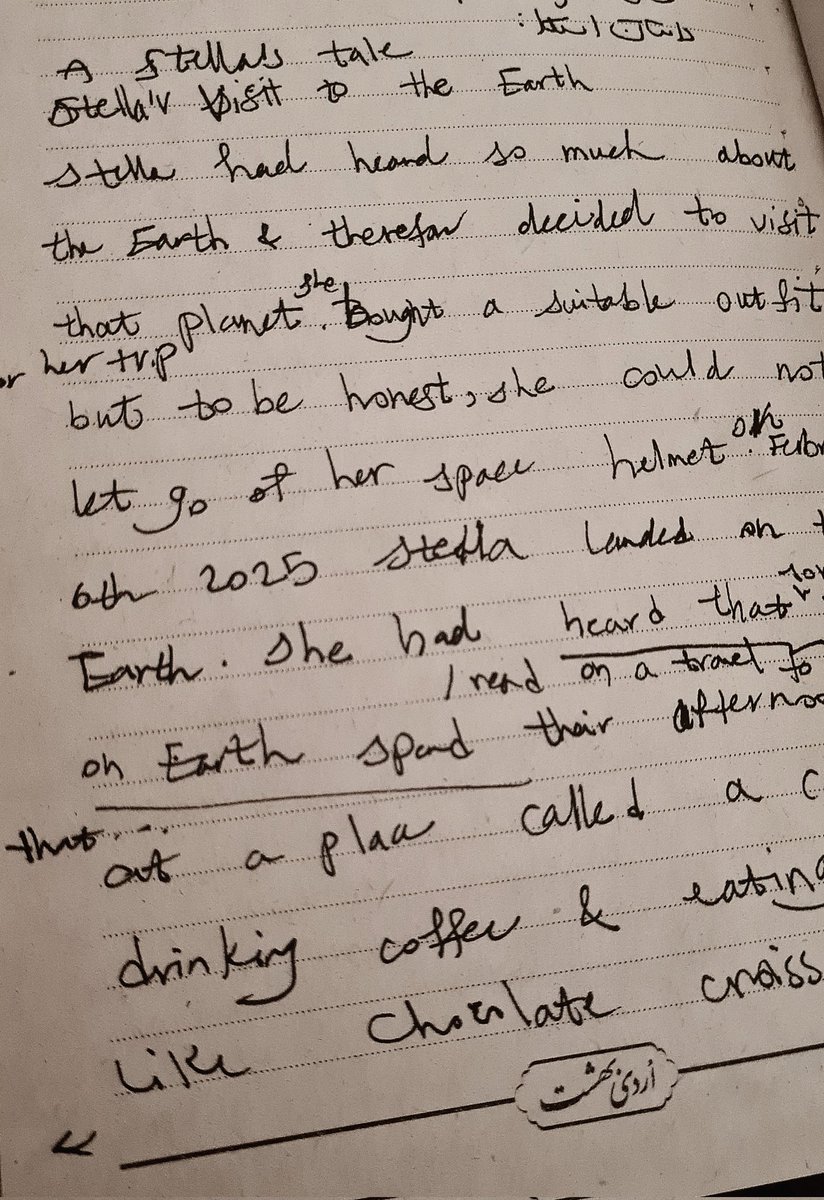 داستان استلا :
A Stella's tale
Stella's Visit to the Earth
Stella had heard so much about
the Earth & therefor decided to visit
that planet. she Bought a suitable outfit
or her trip
but to be honest, she could not
let go of her space helmet. on Febr
6th 2025 Stella landed on t
Earth. She had heard that
/ read on a travel to
on Earth spend their afternoo
that...
at a place called a c
drinking coffee & eating
Like Chocolate croiss
اردی‌بهشت